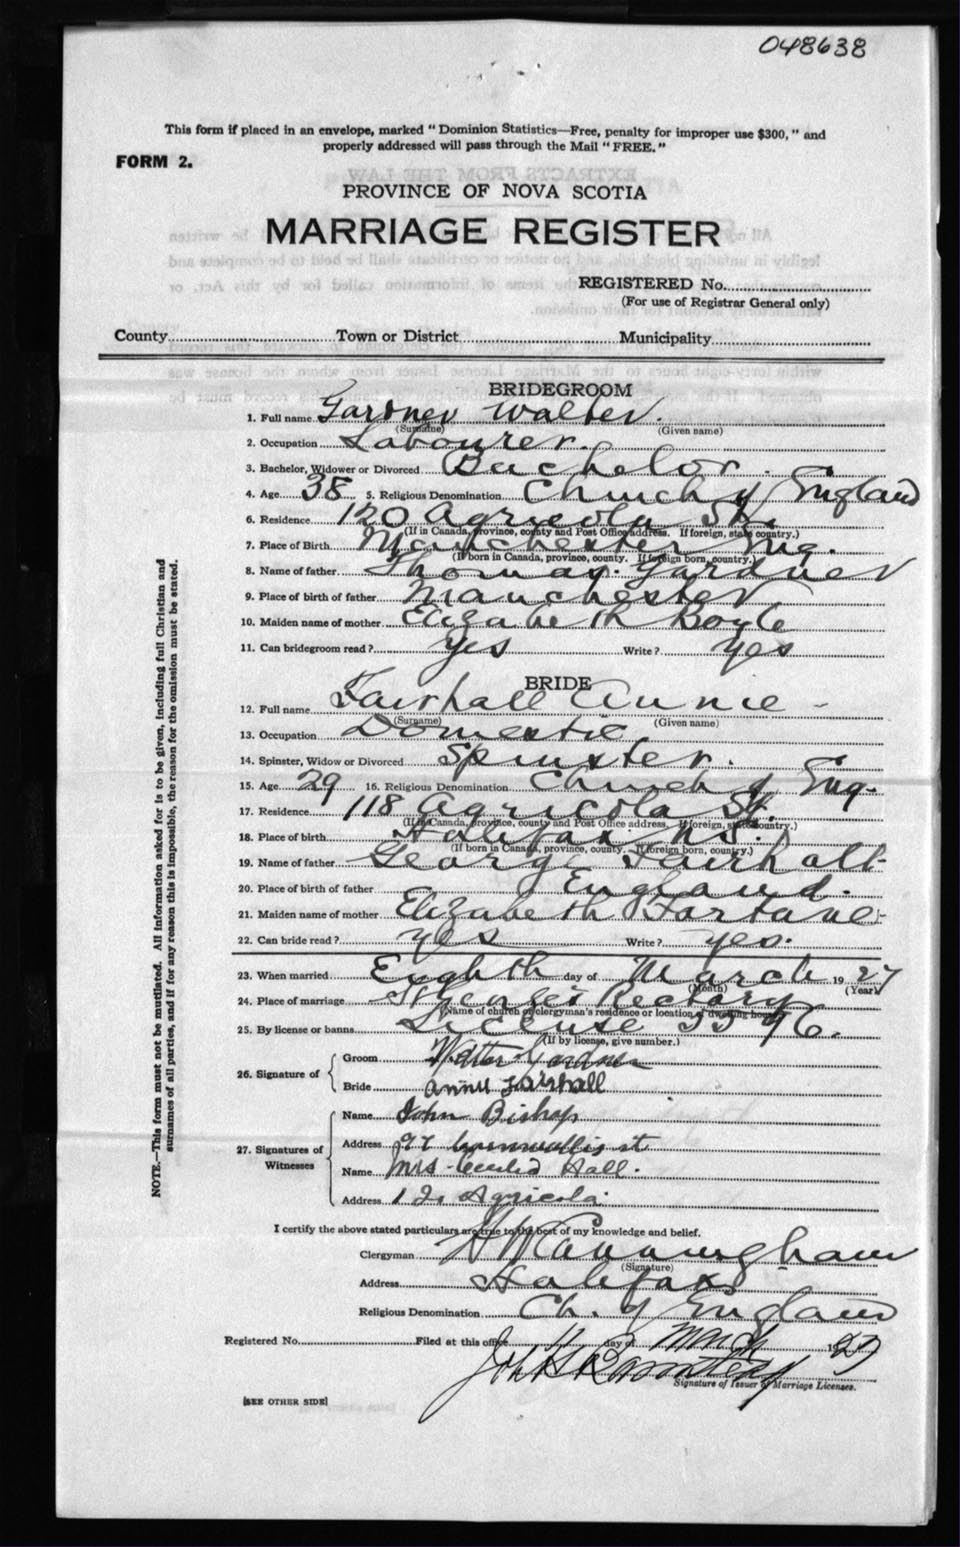 048638
This form if placed in an envelope, marked "Dominion Statistics—Free, penalty for improper use $300," and
properly addressed will pass through the Mail "FREE."
FORM 2.
PROVINCE OF NOVA SCOTIA
MARRIAGE REGISTER
REGISTERED No.
(For use of Registrar General only)
County Town or District Municipality
BRIDEGROOM
1. Full name Gardner Walter.
(Surname) (Given name)
2. Occupation Labourer.
3. Bachelor, Widower or Divorced Bachelor.
4. Age 38 5. Religious Denomination Church of England
6. Residence 120 Agricola St.
(If in Canada, province, county and Post Office address. If foreign, state country.)
7. Place of Birth Manchester Eng.
(If born in Canada, province, county. If foreign born, country.)
8. Name of father Thomas Gardner
9. Place of birth of father Manchester
10. Maiden name of mother Elizabeth Boyle
11. Can bridegroom read? yes Write? yes
BRIDE
12. Full name Fairhall Annie -
(Surname) (Given name)
13. Occupation Domestic
14. Spinster, Widow or Divorced Spinster.
15. Age 29 16. Religious Denomination Church of Eng.
17. Residence 118 Agricola St.
(If in Canada, province, county and Post Office address. If foreign, state country.)
18. Place of birth Halifax NS.
(If born in Canada, province, county. If foreign born, country.)
19. Name of father George Fairhall
20. Place of birth of father England.
21. Maiden name of mother Elizabeth
22. Can bride read? yes Write? yes.
23. When married Eighth day of March 1927
(Month) (Year)
24. Place of marriage St George's Rectory
(Name of church or clergyman's residence or location of dwelling house)
25. By license or banns License 5596.
(If by license, give number.)
26. Signature of Groom Walter Gardner
Bride Annie Fairhall
27. Signatures of Witnesses
Name John Bishop
Address 97 Cornwallis st
Name Mrs Hall.
Address Agricola.
I certify the above stated particulars are true to the best of my knowledge and belief.
Clergyman Cunningham
(Signature)
Address Halifax
Religious Denomination Ch. of England
Registered No. Filed at this office day of March 1927
Signature of Issuer of Marriage Licenses.
[SEE OTHER SIDE]
NOTE.—This form must not be mutilated. All information asked for is to be given, including full Christian and
surnames of all parties, and if for any reason this is impossible, the reason for the omission must be stated.